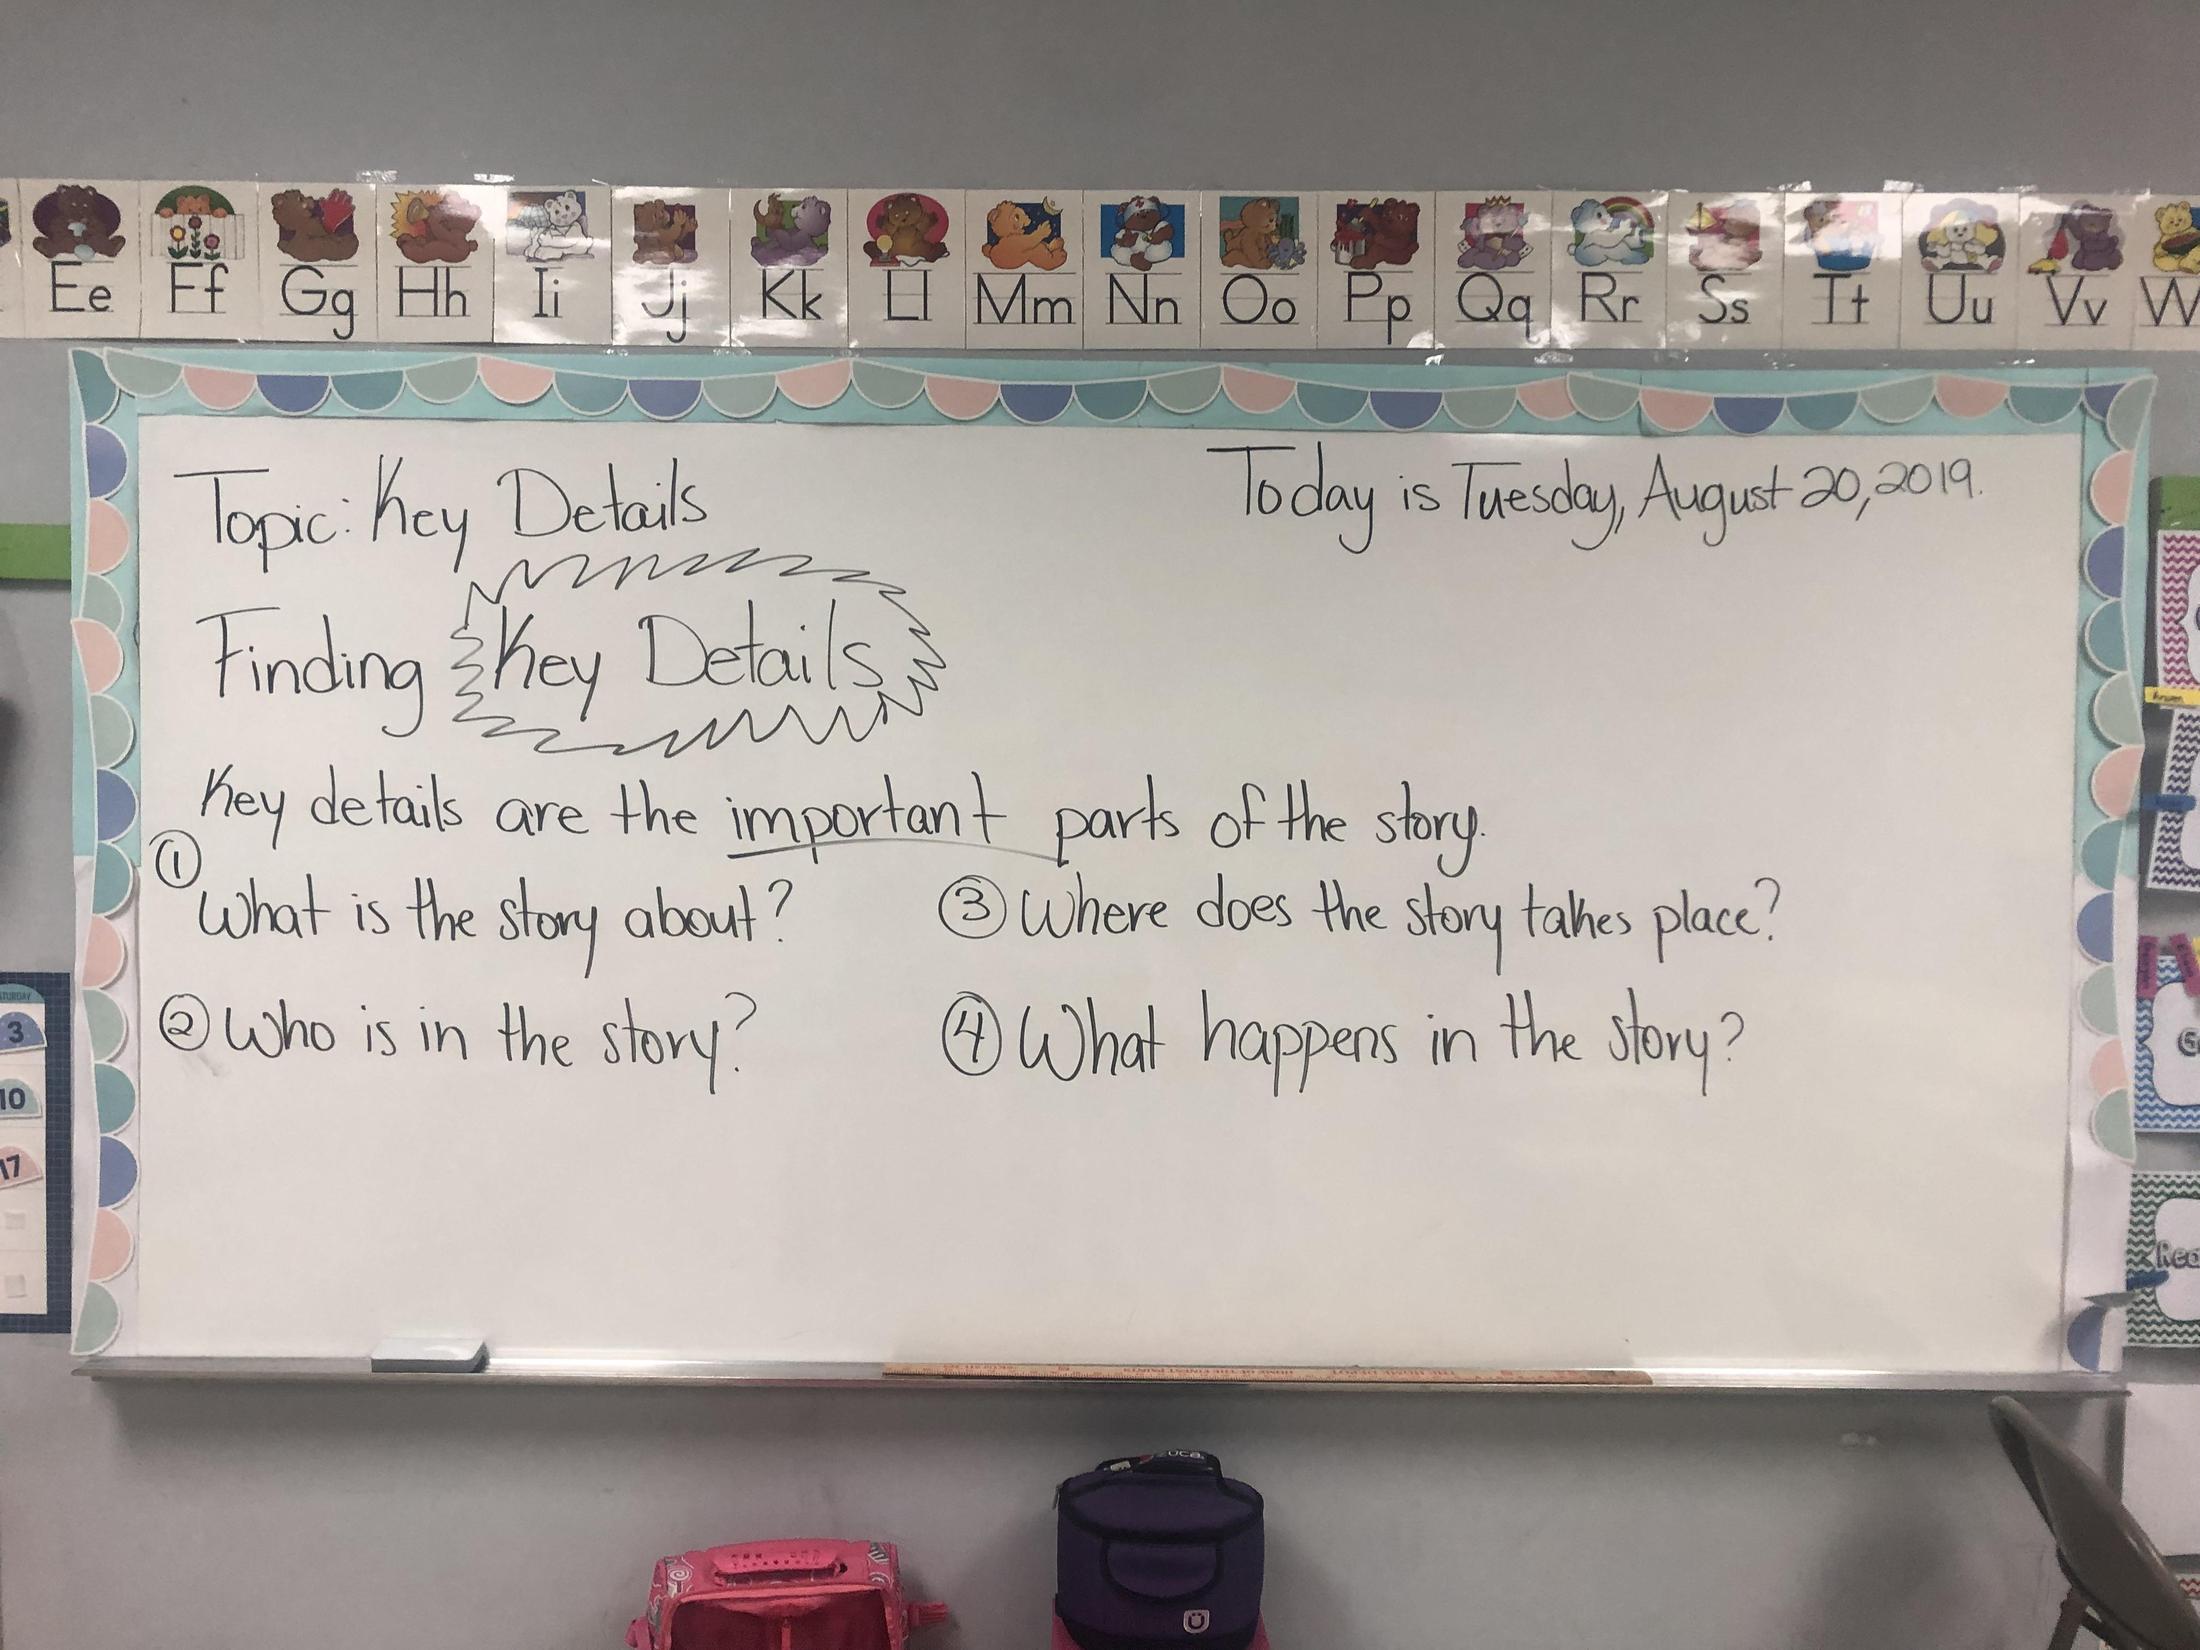 Ee Ff Gg Hh Ii Jj Kk Ll Mm Nn Oo Pp Qq Rr Ss Tt Uu Vv W
Topic: Key Details
Today is Tuesday, August 20, 2019.
Finding Key Details
Key details are the important parts of the story.
① What is the story about?
② Who is in the story?
③ Where does the story takes place?
④ What happens in the story?
3
10
17